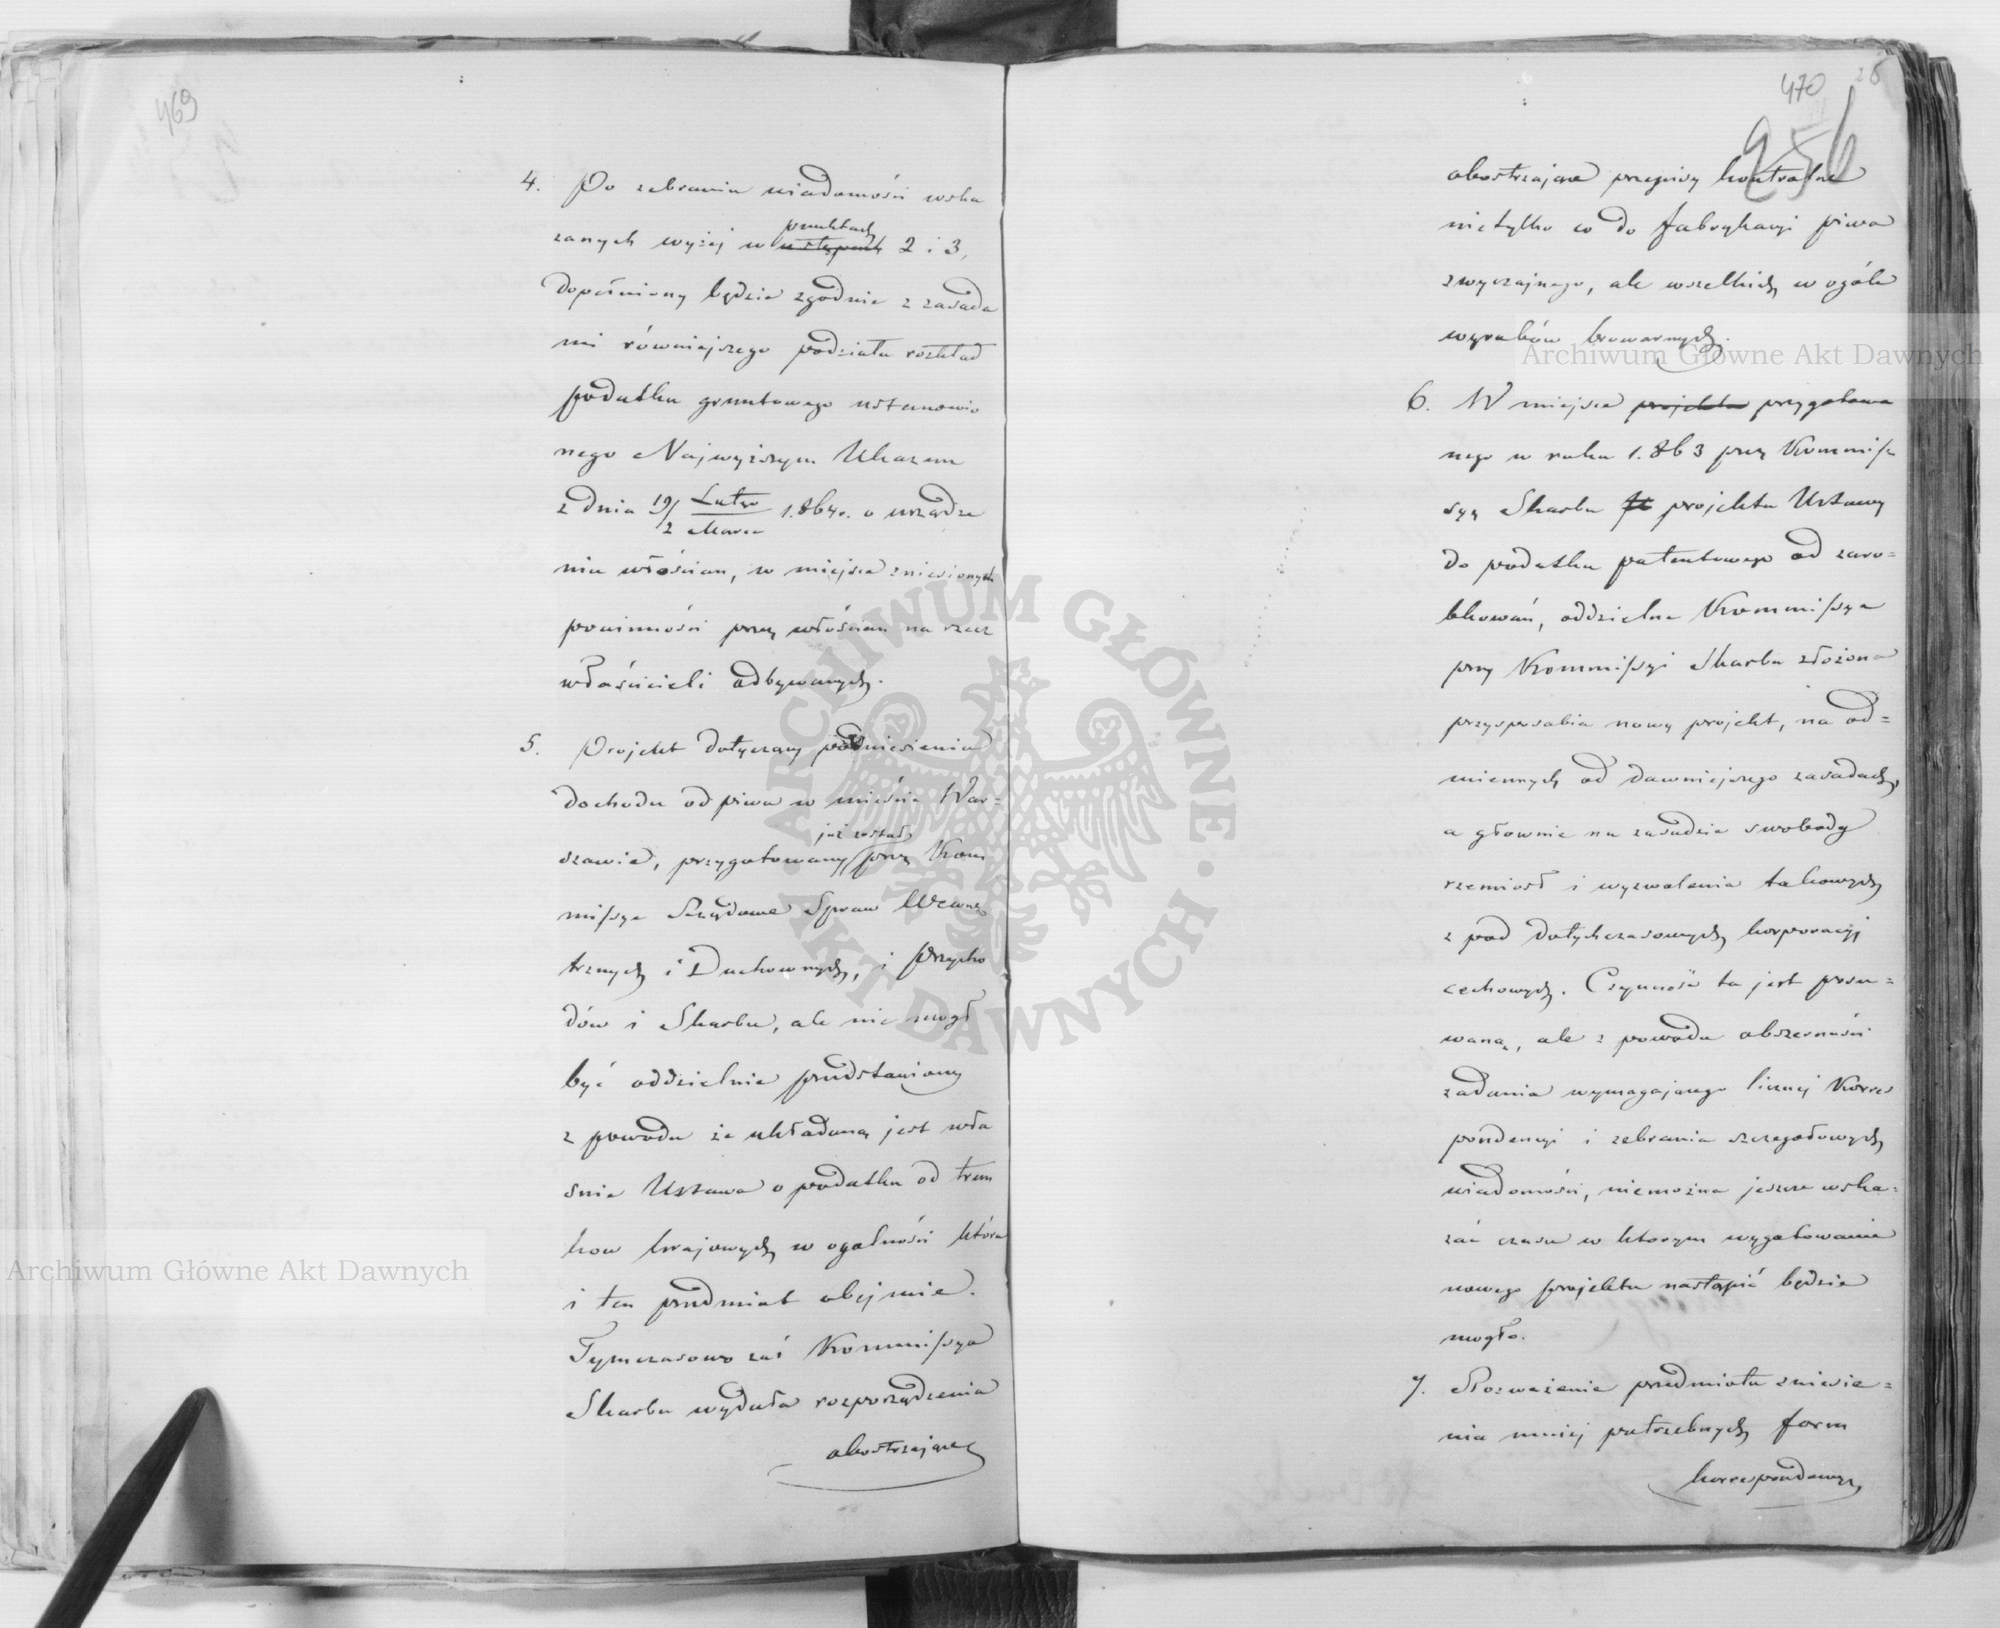 469
4. Po zebraniu wiadomości wska
zanych wyżej w ustępach punktach 2 i 3,
dopełniony będzie zgodnie z zasada
mi równiejszego podziału rozkład
podatku gruntowego ustanowio
nego Najwyższym Ukazem
z dnia 19/2 Lutego/Marca 1864 r. o urządze
niu włościan, w miejsce zniesionych
powinności przez włościan na rzecz
właścicieli odbywanych.
5. Projekt dotyczący podniesienia
dochodu od piwa w mieście War=
już został
szawie, przygotowany przez Kom
missye Rządowe Spraw Wewnę
trznych i Duchownych, i Przycho
dów i Skarbu, ale nie mógł
być oddzielnie przedstawiony
z powodu że układaną jest wła
śnie Ustawa o podatku od trun
ków krajowych w ogólności która
i ten przedmiot obejmie.
Tymczasowo zaś Kommissya
Skarbu wydała rozporządzenia
obostrzające
470
256
obostrzające przepisy kontrolne
nietylko co do fabrykacyi piwa
zwyczajnego, ale wszelkich w ogóle
wyrobów browarnych.
6. W miejsce projektu przygotowa
nego w roku 1863 przez Kommis
syą Skarbu projektu Ustawy
do podatku patentowego od zaro=
bkowań, oddzielna Kommissya
przy Kommissyi Skarbu złożona
przysposabia nowy projekt, na od=
miennych od dawniejszego zasadach,
a głownie na zasadzie swobody
rzemiosł i wyzwolenia takowych
z pod dotychczasowych korporacyj
cechowych. Czynność ta jest posu=
waną, ale z powodu obszerności
zadania wymagającego licznej Korres
pondencyi i zebrania szczegołowych
wiadomości, niemożna jeszcze wska=
zać czasu w ktorym wygotowanie
nowego projektu nastąpić będzie
mogło.
7. Rozważenie przedmiotu zniesie=
nia mniej potrzebnych form
korrespondencyi
Archiwum Główne Akt Dawnych
Archiwum Główne Akt Dawnych
ARCHIWUM GŁÓWNE · AKT DAWNYCH ·